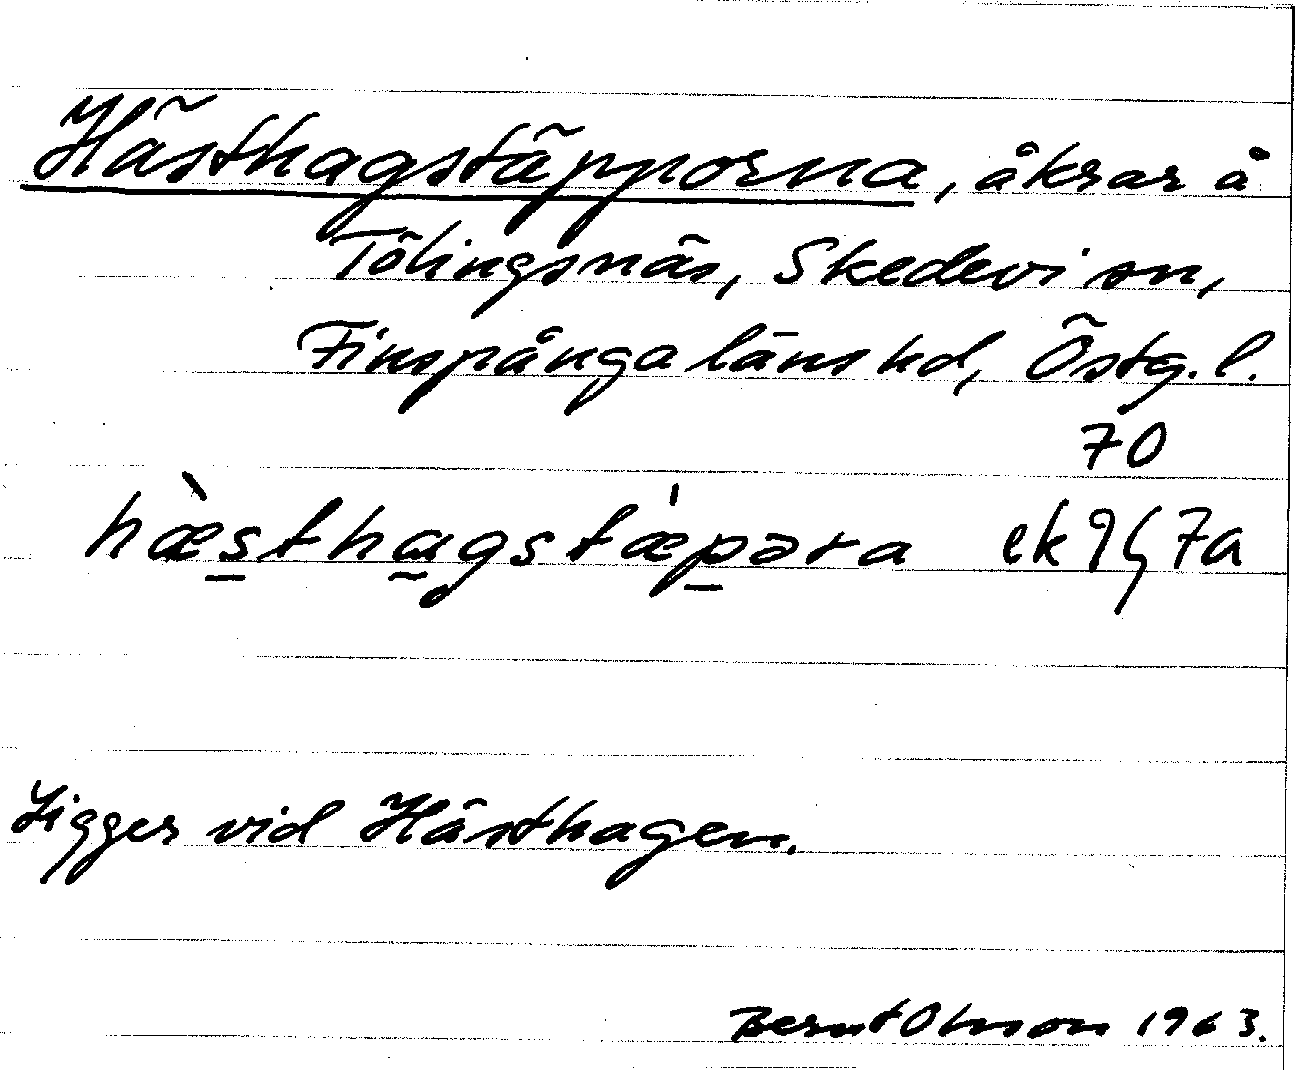 Hästhagstäpporna, åkrar å
Tölingsnäs, Skedevi sn,
Finspånga läns hd, Östg. l.
70
hæ̀s̲tha̰gstǽp̲əra ek 9G 7a
Ligger vid Hästhagen.
Bernt Olsson 1963.